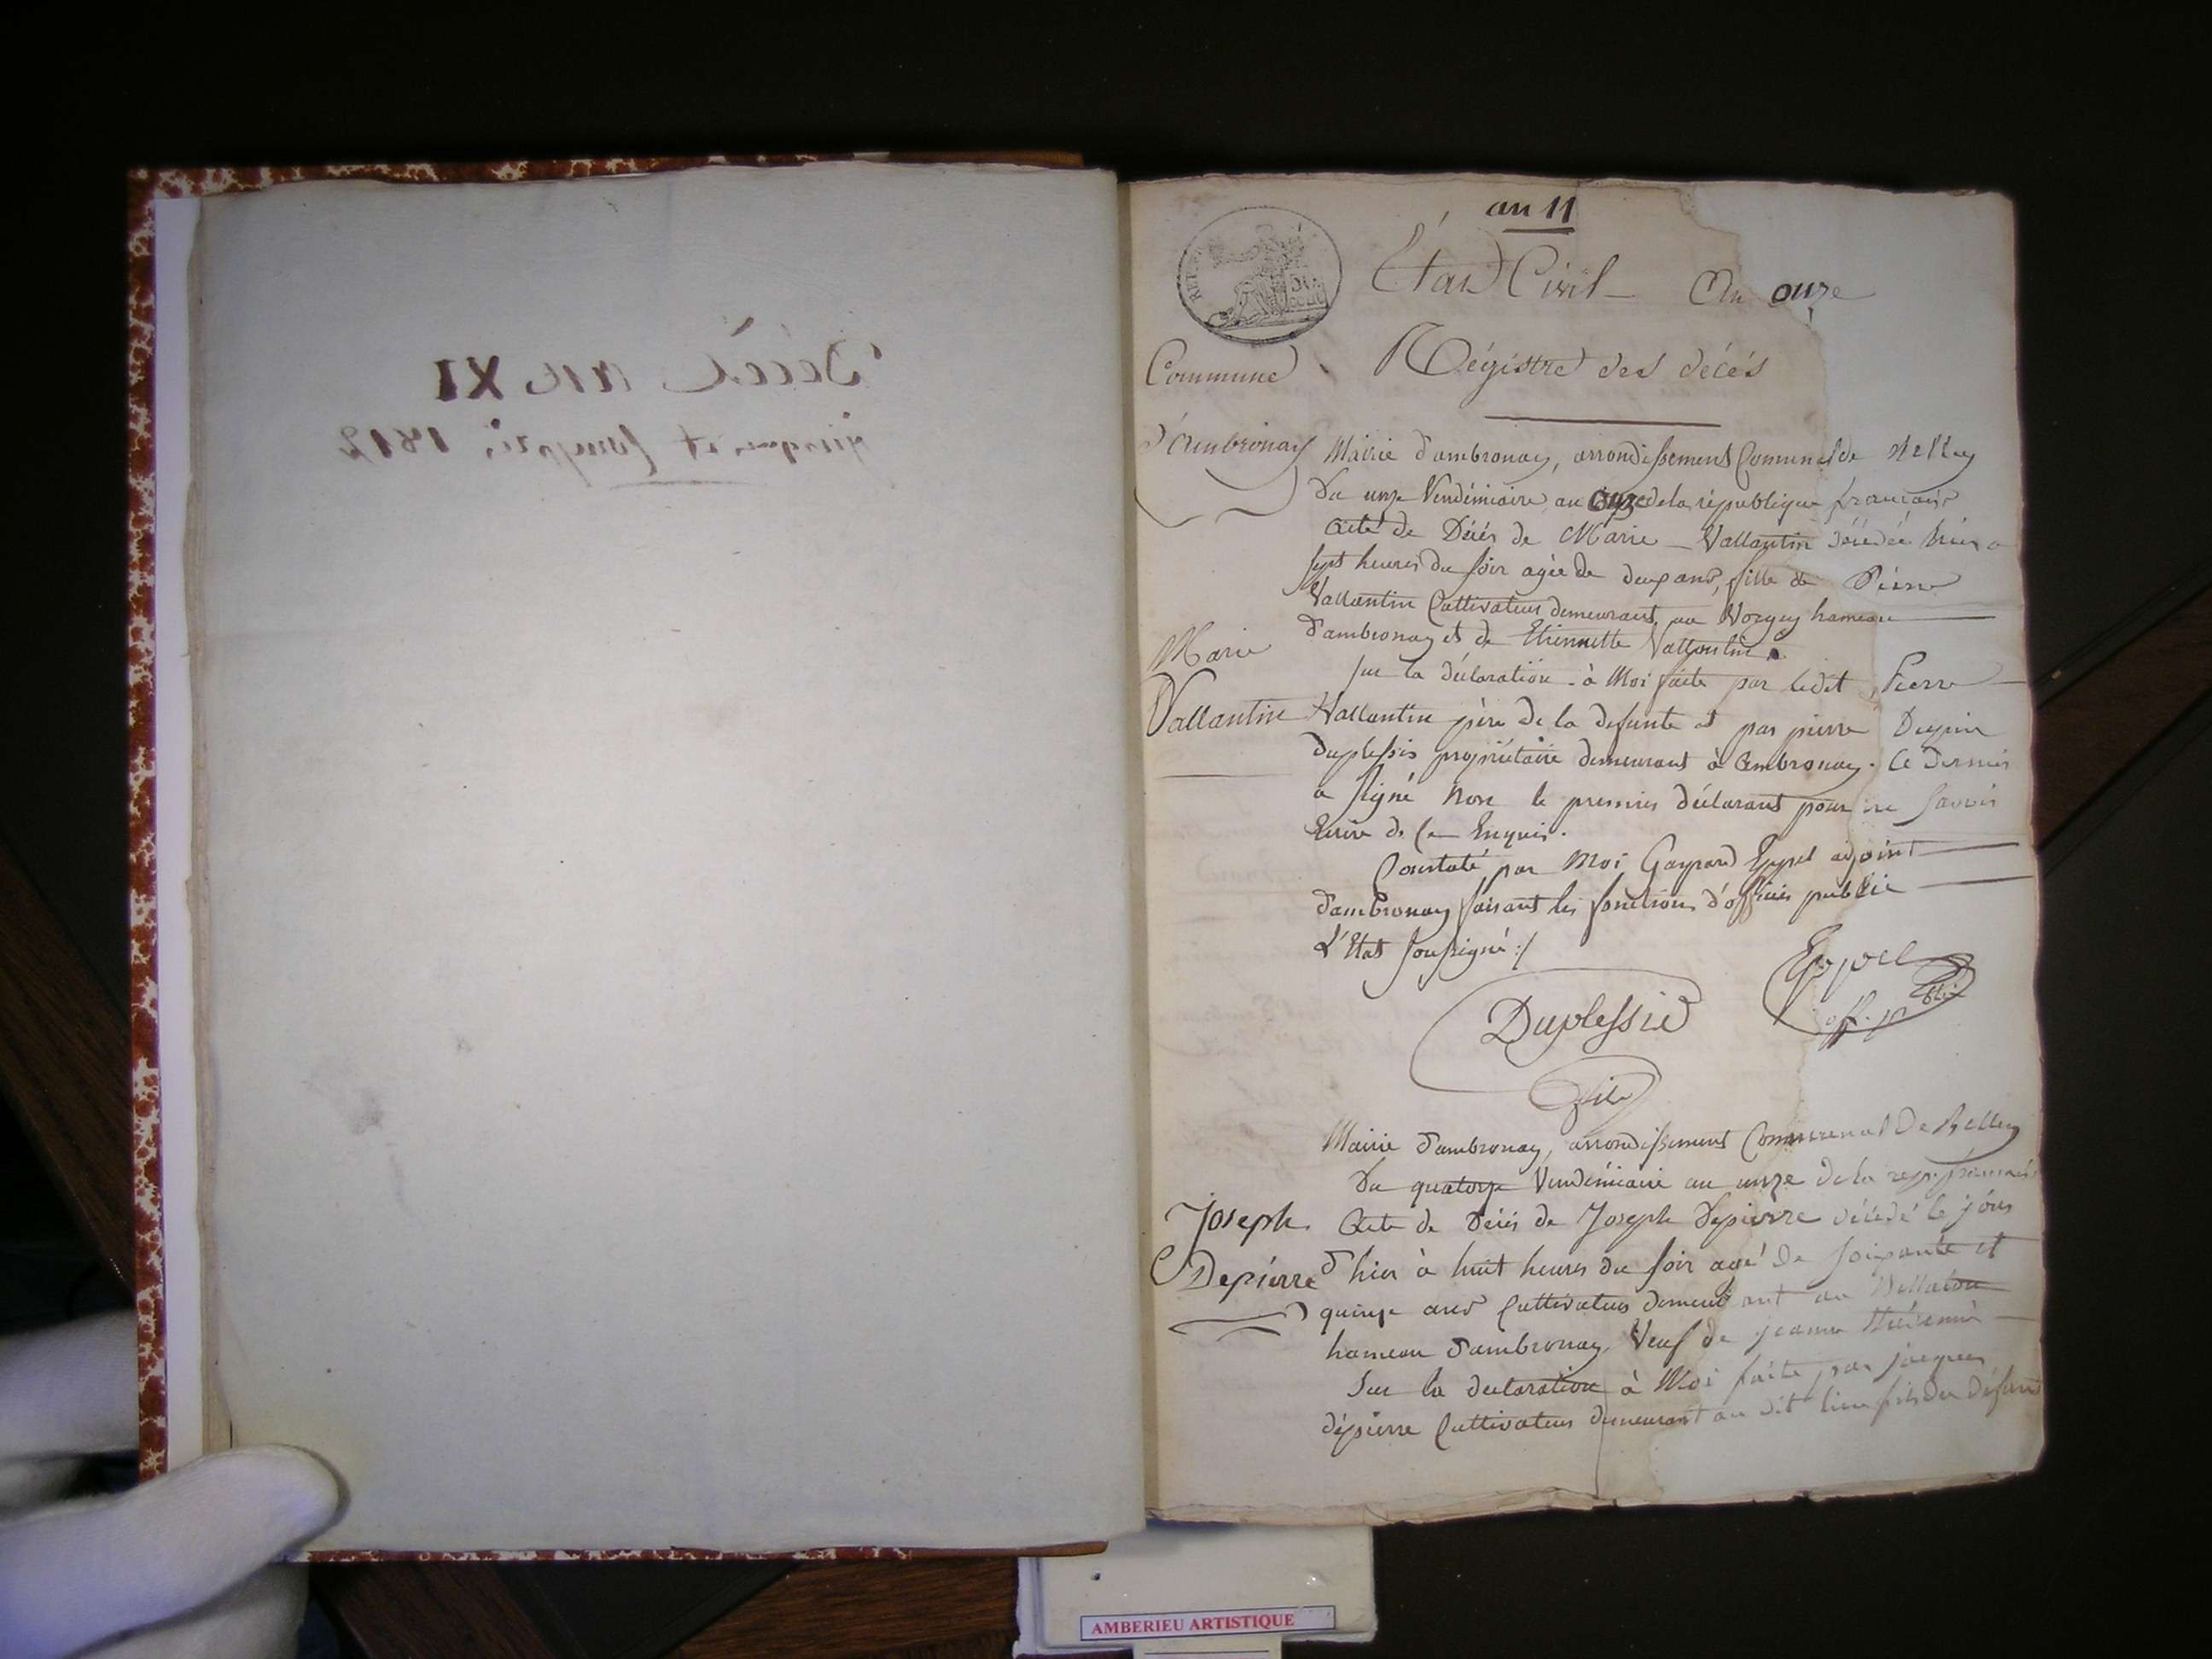 Décès an XI
jusques et compris 1812
an 11
État Civil An onze
Commune Régistre des décés
d'Ambronay Mairie d'ambronay, arrondissement Communal de Belley
Du onze Vendémiaire, an onze de la république française
Acte de Décès de Marie Vallantin décédée hier a
sept heures du soir agée de deux ans, fille de Pierre
Vallantin Cultivateur demeurant au hameau
d'ambronay et de Etiennette Vallantin.
Marie
Vallantin
sur la déclaration à Moi faite par ledit Pierre
Vallantin père de la defunte et par pierre Dupin
duplessis propriétaire demeurant à Ambronay. Ce dernier
a signé non le premier déclarant pour ne savoir
Ecrire de ce Enquis.
Constaté par Moi Gaspard Eypel adjoint
d'ambronay faisant les fonctions d'officier public
d'Etat soussigné :/
Eypel
off. p. blic
Duplessis
Mairie d'ambronay, arrondissement Communal De Belley
Du quatorze Vendémiaire an onze de la rep. française
Joseph
Depierre
Acte de Décès de Joseph Depierre décédé le jour
d'hier à huit heures du soir agé de soixante et
quinze ans Cultivateur demeurant au
hameau d'ambronay, Veuf de jeanne
Sur la declaration à Moi faite par jacques
dépierre Cultivateur demeurant au dit lieu fils du défunt
AMBERIEU ARTISTIQUE